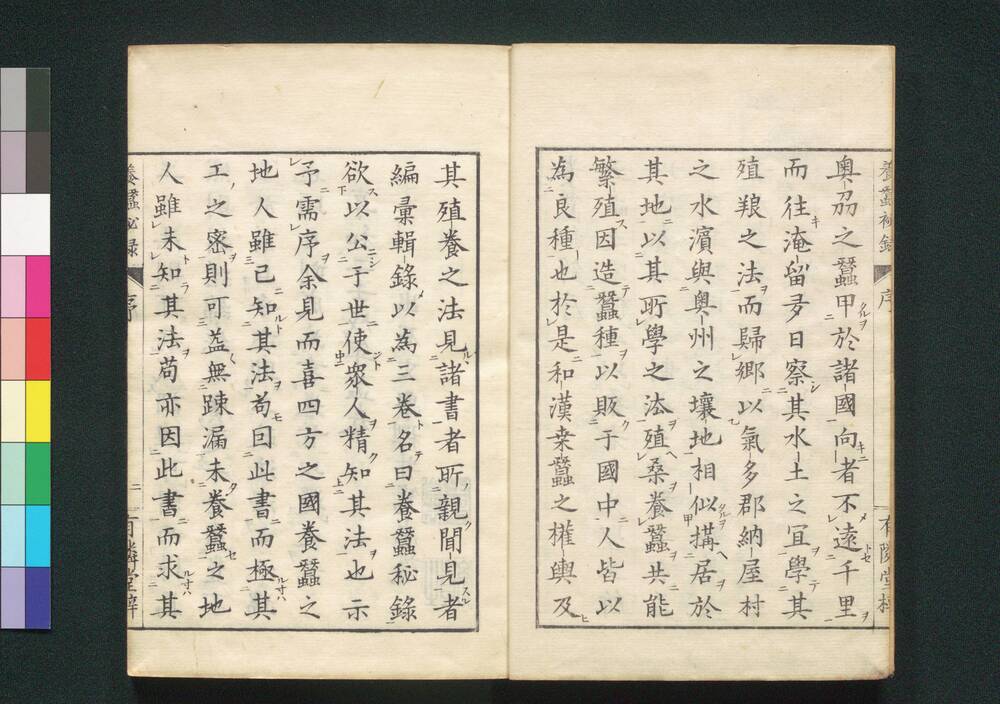 養蠶秘録
序
奥刕之蠶甲於諸國向者不遠千里
而往淹留多日察其水土之冝學其
殖養之法而歸郷以氣多郡納屋村
之水濱與奥州之壤地相似搆居於
其地以其所學之法殖桑養蠶共能
繁殖因造蠶種以販于國中人皆以
為良種也於是和漢桒蠶之權輿及
其殖養之法見諸書者所親聞見者
編彙輯錄以為三卷名曰養蠶秘錄
欲以公于世使衆人精知其法也示
予需序余見而喜四方之國養蠶之
地人雖已知其法苟因此書而極其
工之密則可益無踈漏未養蠶之地
人雖未知其法苟亦因此書而求其
養蠶秘録
序
二